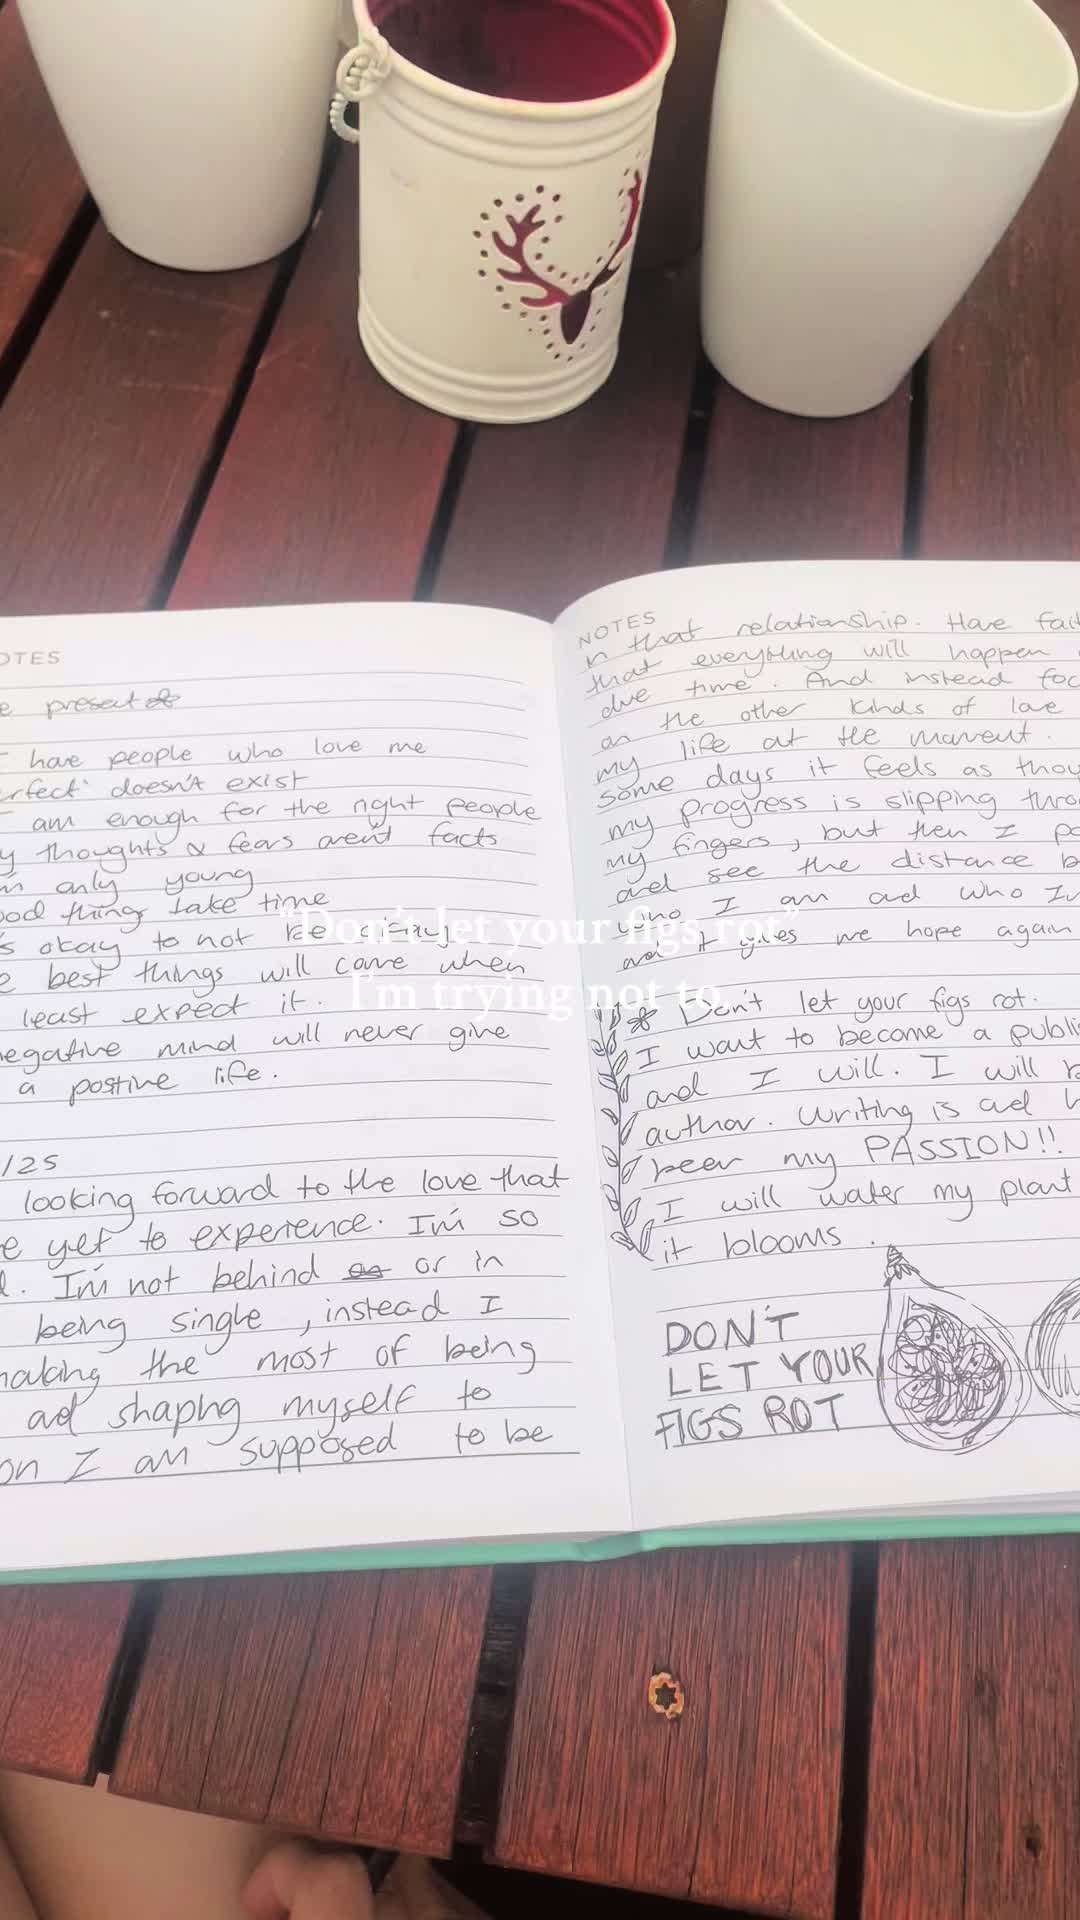 OTES
e present
I have people who love me
erfect' doesn't exist
I am enough for the right people
y thoughts & fears aren't facts
I'm only young
ood things take time
's okay to not be okay
e best things will come when
least expect it.
negative mind will never give
a postive life.
/25
looking forward to the love that
e yet to experience. I'm so
d. I'm not behind or in
being single, instead I
making the most of being
ad shaping myself to
on I am supposed to be
NOTES
n that relationship. Have fait
that everything will happen
due time. And instead foc
on the other kinds of love
my life at the moment.
some days it feels as thou
my progress is slipping thro
my fingers, but then I pa
and see the distance b
who I am ad who I
and it gives me hope again
Don't let your figs rot.
I want to become a publi
and I will. I will b
author. Writing is ad h
been my PASSION!!
I will water my plant
it blooms.
DON'T
LET YOUR
FIGS ROT
"Don't let your figs rot"
I'm trying not to.